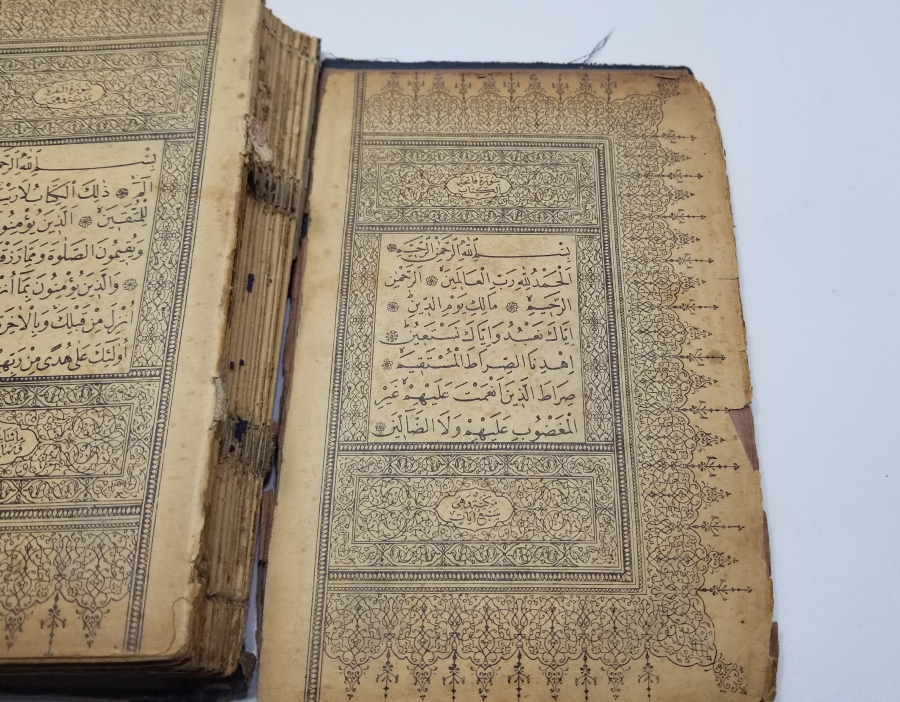 سورة فاتحة
الكتاب
بِسْمِ اللهِ الرَّحْمٰنِ الرَّحِيمِ
اَلْحَمْدُ لِلّٰهِ رَبِّ الْعَالَمِينَ الرَّحْمٰنِ
الرَّحِيمِ مَالِكِ يَوْمِ الدِّينِ
اِيَّاكَ نَعْبُدُ وَاِيَّاكَ نَسْتَعِينُ
اِهْدِنَا الصِّرَاطَ الْمُسْتَقِيمَ
صِرَاطَ الَّذِينَ اَنْعَمْتَ عَلَيْهِمْ غَيْرِ
الْمَغْضُوبِ عَلَيْهِمْ وَلَا الضَّالِّينَ
مكية وهى
سبع آيات
سورة البقرة
بِسْمِ اللهِ
الٓمٓ ذٰلِكَ الْكِتَابُ لَا
لِلْمُتَّقِينَ الَّذِينَ
وَيُقِيمُونَ الصَّلٰوةَ وَمِمَّا
وَالَّذِينَ يُؤْمِنُونَ بِمَا
اُنْزِلَ مِنْ قَبْلِكَ
اُولٰئِكَ عَلٰى هُدًى مِنْ